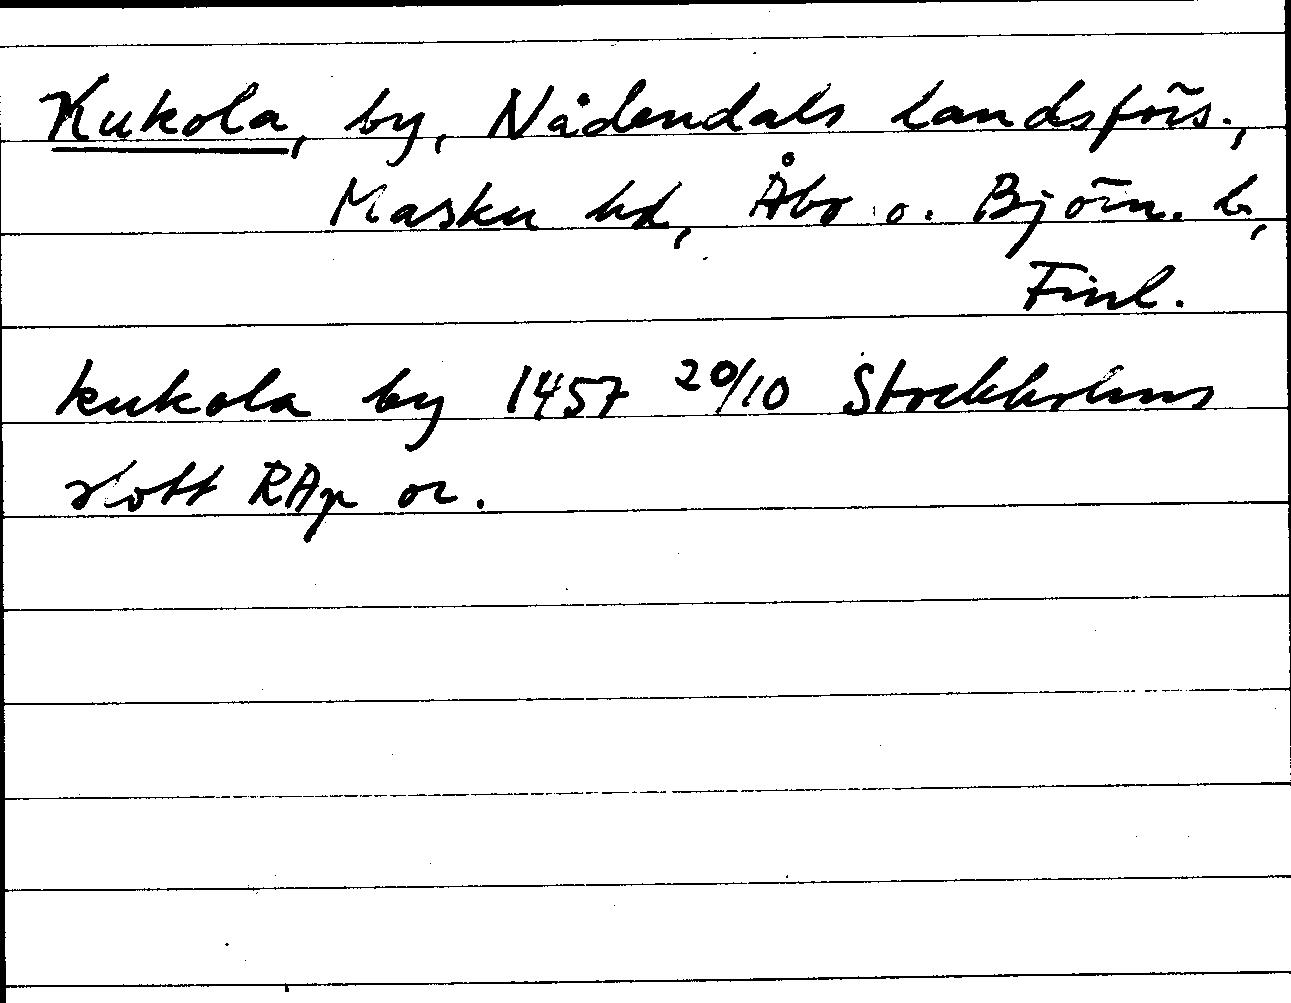 Kukola, by, Nådendals landsförs.,
Masku hd, Åbo o. Björn. l.,
Finl.
kukola by 1457 20/10 Stockholms
slott RAp or.